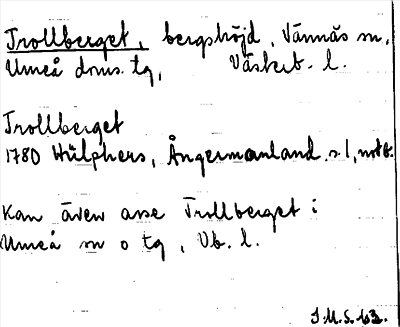 Trollberget, bergshöjd, Vännäs sn,
Umeå doms. tg, Västerb. l.
Trollberget
1780 Hülphers, Ångermanland s 1, not 8.
Kan även avse Trollberget i
Umeå sn o tg, Vb. l.
S.M.S. 63.